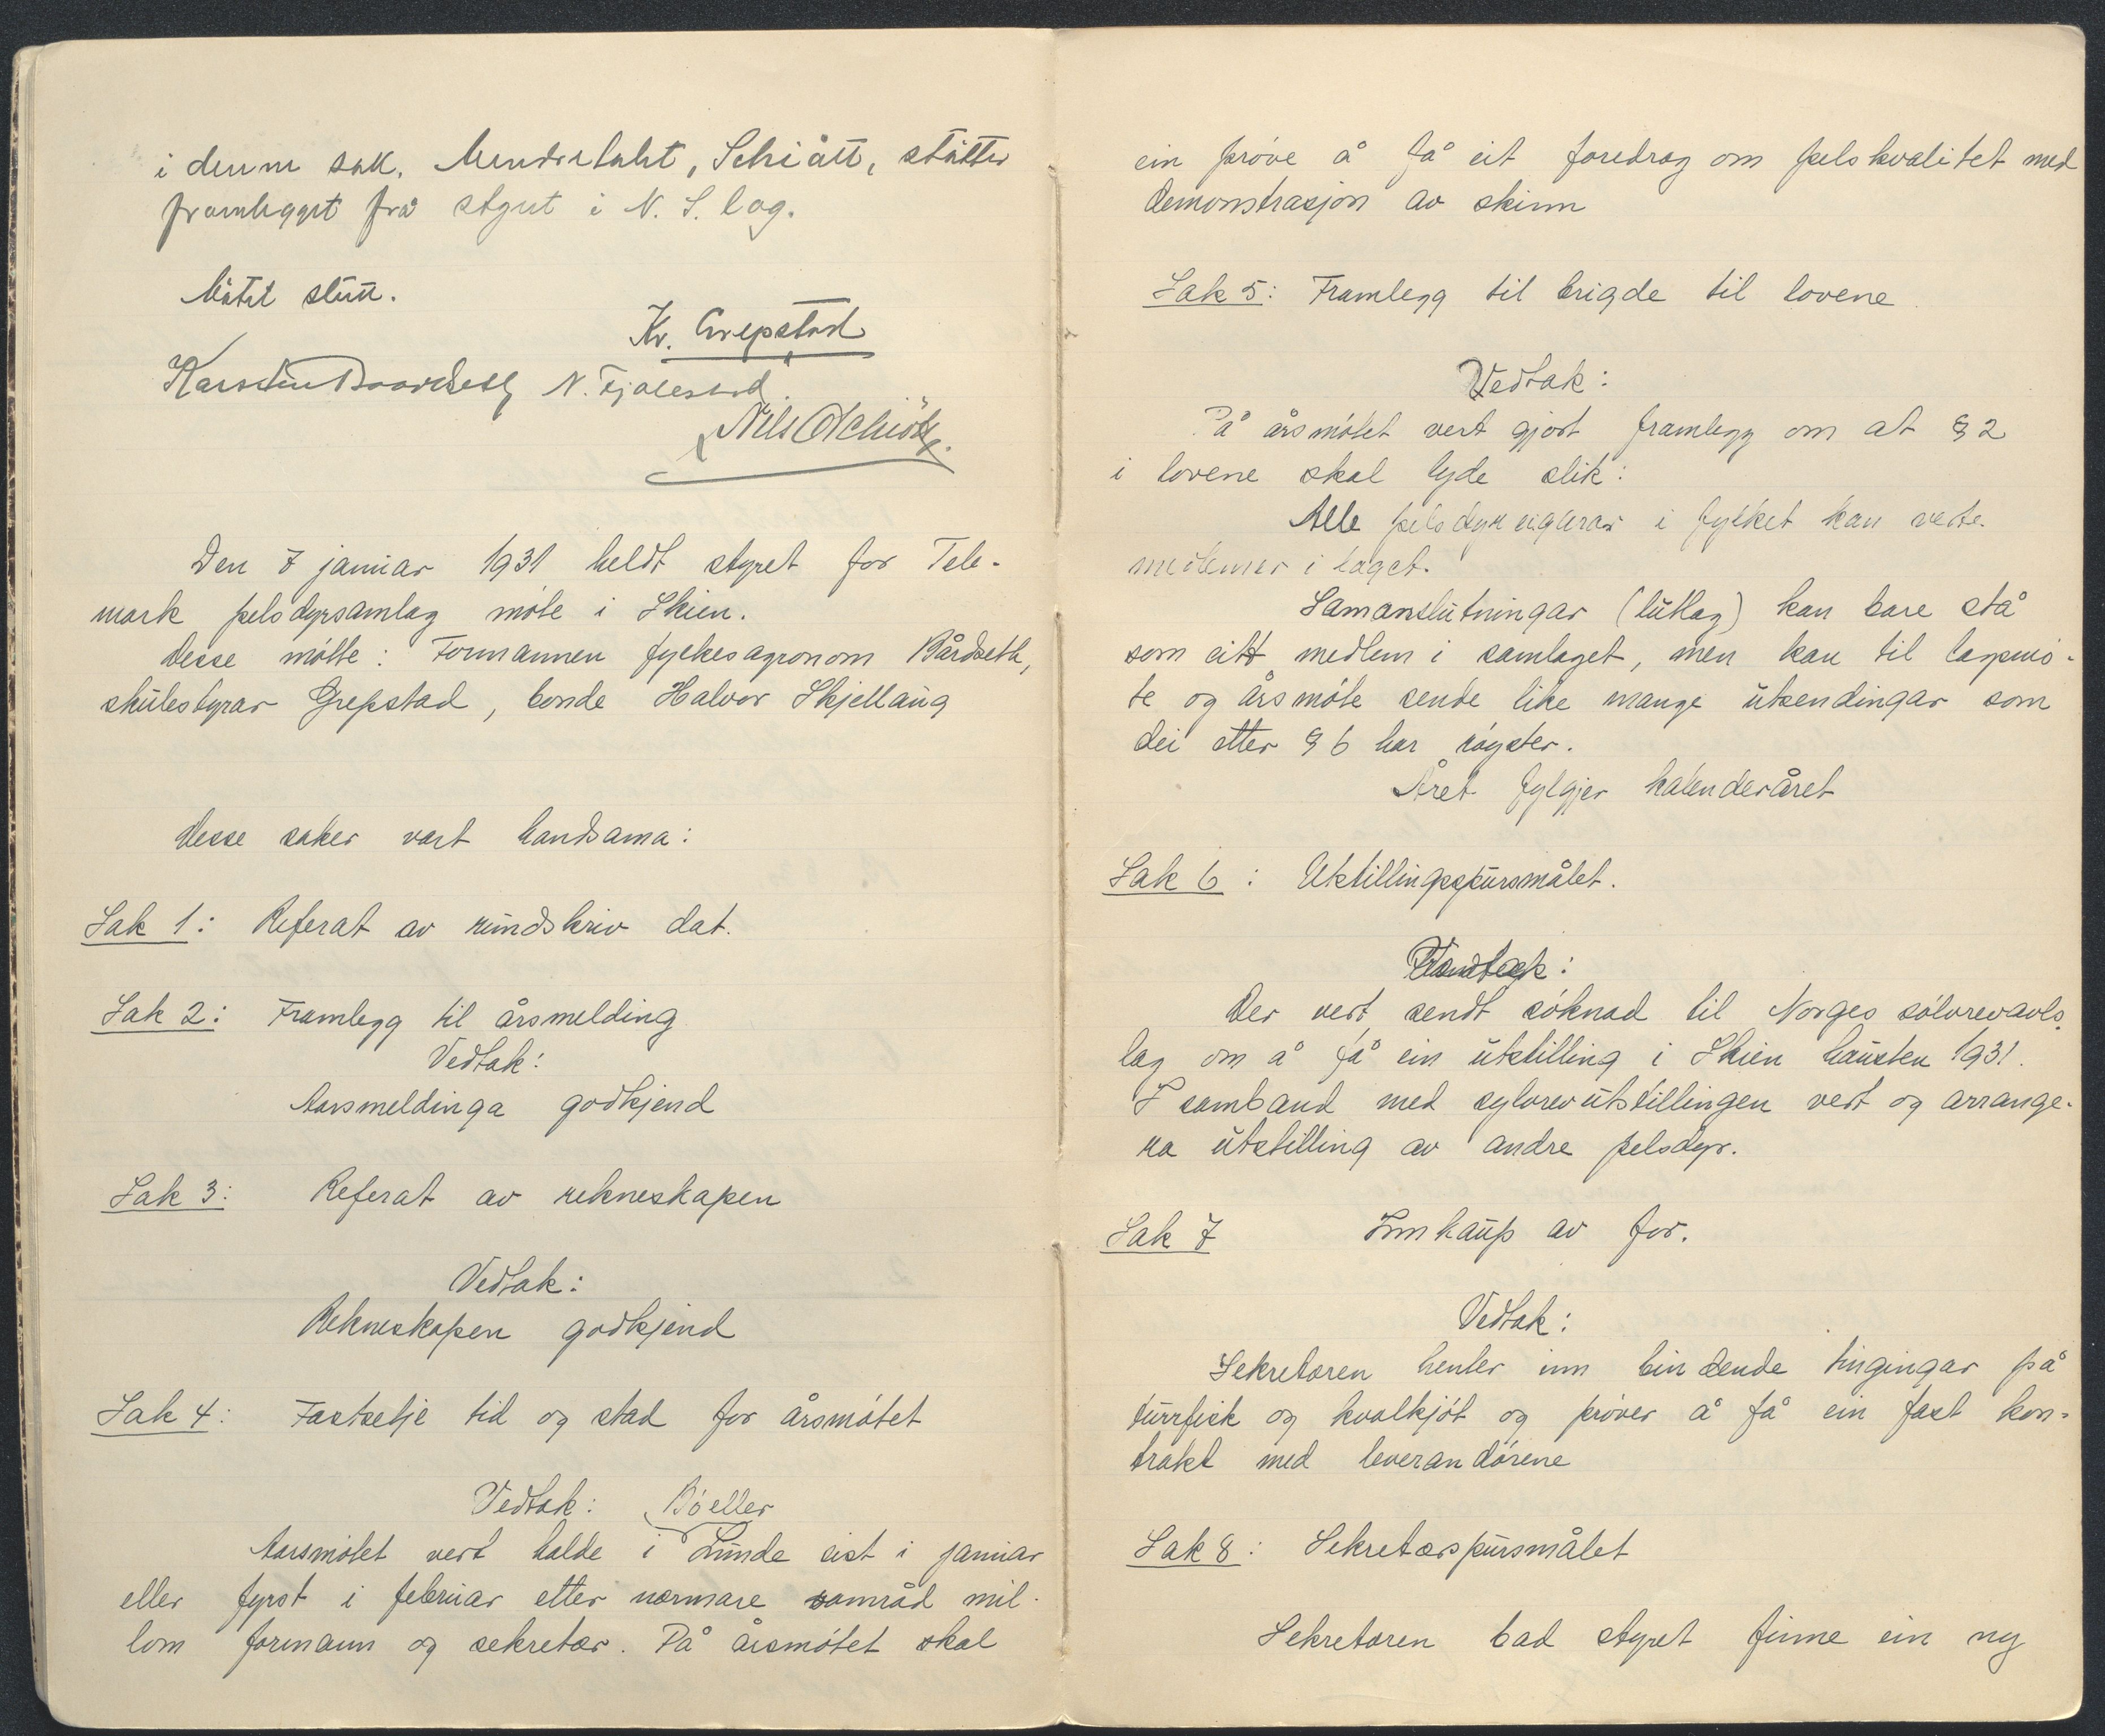 i denne sak. Mindretalet, Schiøtt, støtter
framlegget frå styret i N. S. lag.
Møtet slutt.
Kr. Grepstad
Karsten Baardseth N. Fjalestad
Nils O Schiøtt.
Den 7 januar 1931 heldt styret for Tele-
mark pelsdyrsamlag møte i Skien.
Desse møtte: Formannen fylkesagronom Bårdseth,
skulestyrar Grepstad, bonde Halvor Skjellaug
Desse saker vart handsama:
Sak 1: Referat av rundskriv dat.
Sak 2: Framlegg til årsmelding
Vedtak:
Aarsmeldinga godkjend
Sak 3: Referat av rekneskapen
Vedtak:
Rekneskapen godkjend
Sak 4: Fastsetje tid og stad for årsmøtet
Vedtak: Bø eller
Aarsmøtet vert halde i Lunde sist i januar
eller fyrst i februar etter nærmare samråd mil-
lom formann og sekretær. På årsmøtet skal
ein prøve å få eit foredrag om pelskvalitet med
demonstrasjon av skinn
Sak 5: Framlegg til brigde til lovene
Vedtak:
På årsmøtet vert gjort framlegg om at § 2
i lovene skal lyde slik:
Alle pelsdyreigarar i fylket kan verte
medlemer i laget.
Samanslutningar (lutlag) kan bare stå
som eitt medlem i samlaget, men kan til lagsmø-
te og årsmøte sende like mange utsendingar som
dei etter § 6 har røyster.
Året fylgjer kalenderåret
Sak 6: Utstillingsspursmålet.
Vedtak:
Der vert sendt søknad til Norges sølvrevavls-
lag om å få ein utstilling i Skien hausten 1931.
I samband med sylvrevutstillingen vert og arrange-
ra utstilling av andre pelsdyr.
Sak 7 Innkaup av for.
Vedtak:
Sekretæren henter inn bindende tingingar på
turrfisk og hvalkjøt og prøver å få ein fast kon-
trakt med leverandørene
Sak 8: Sekretærspursmålet
Sekretæren bad styret finne ein ny